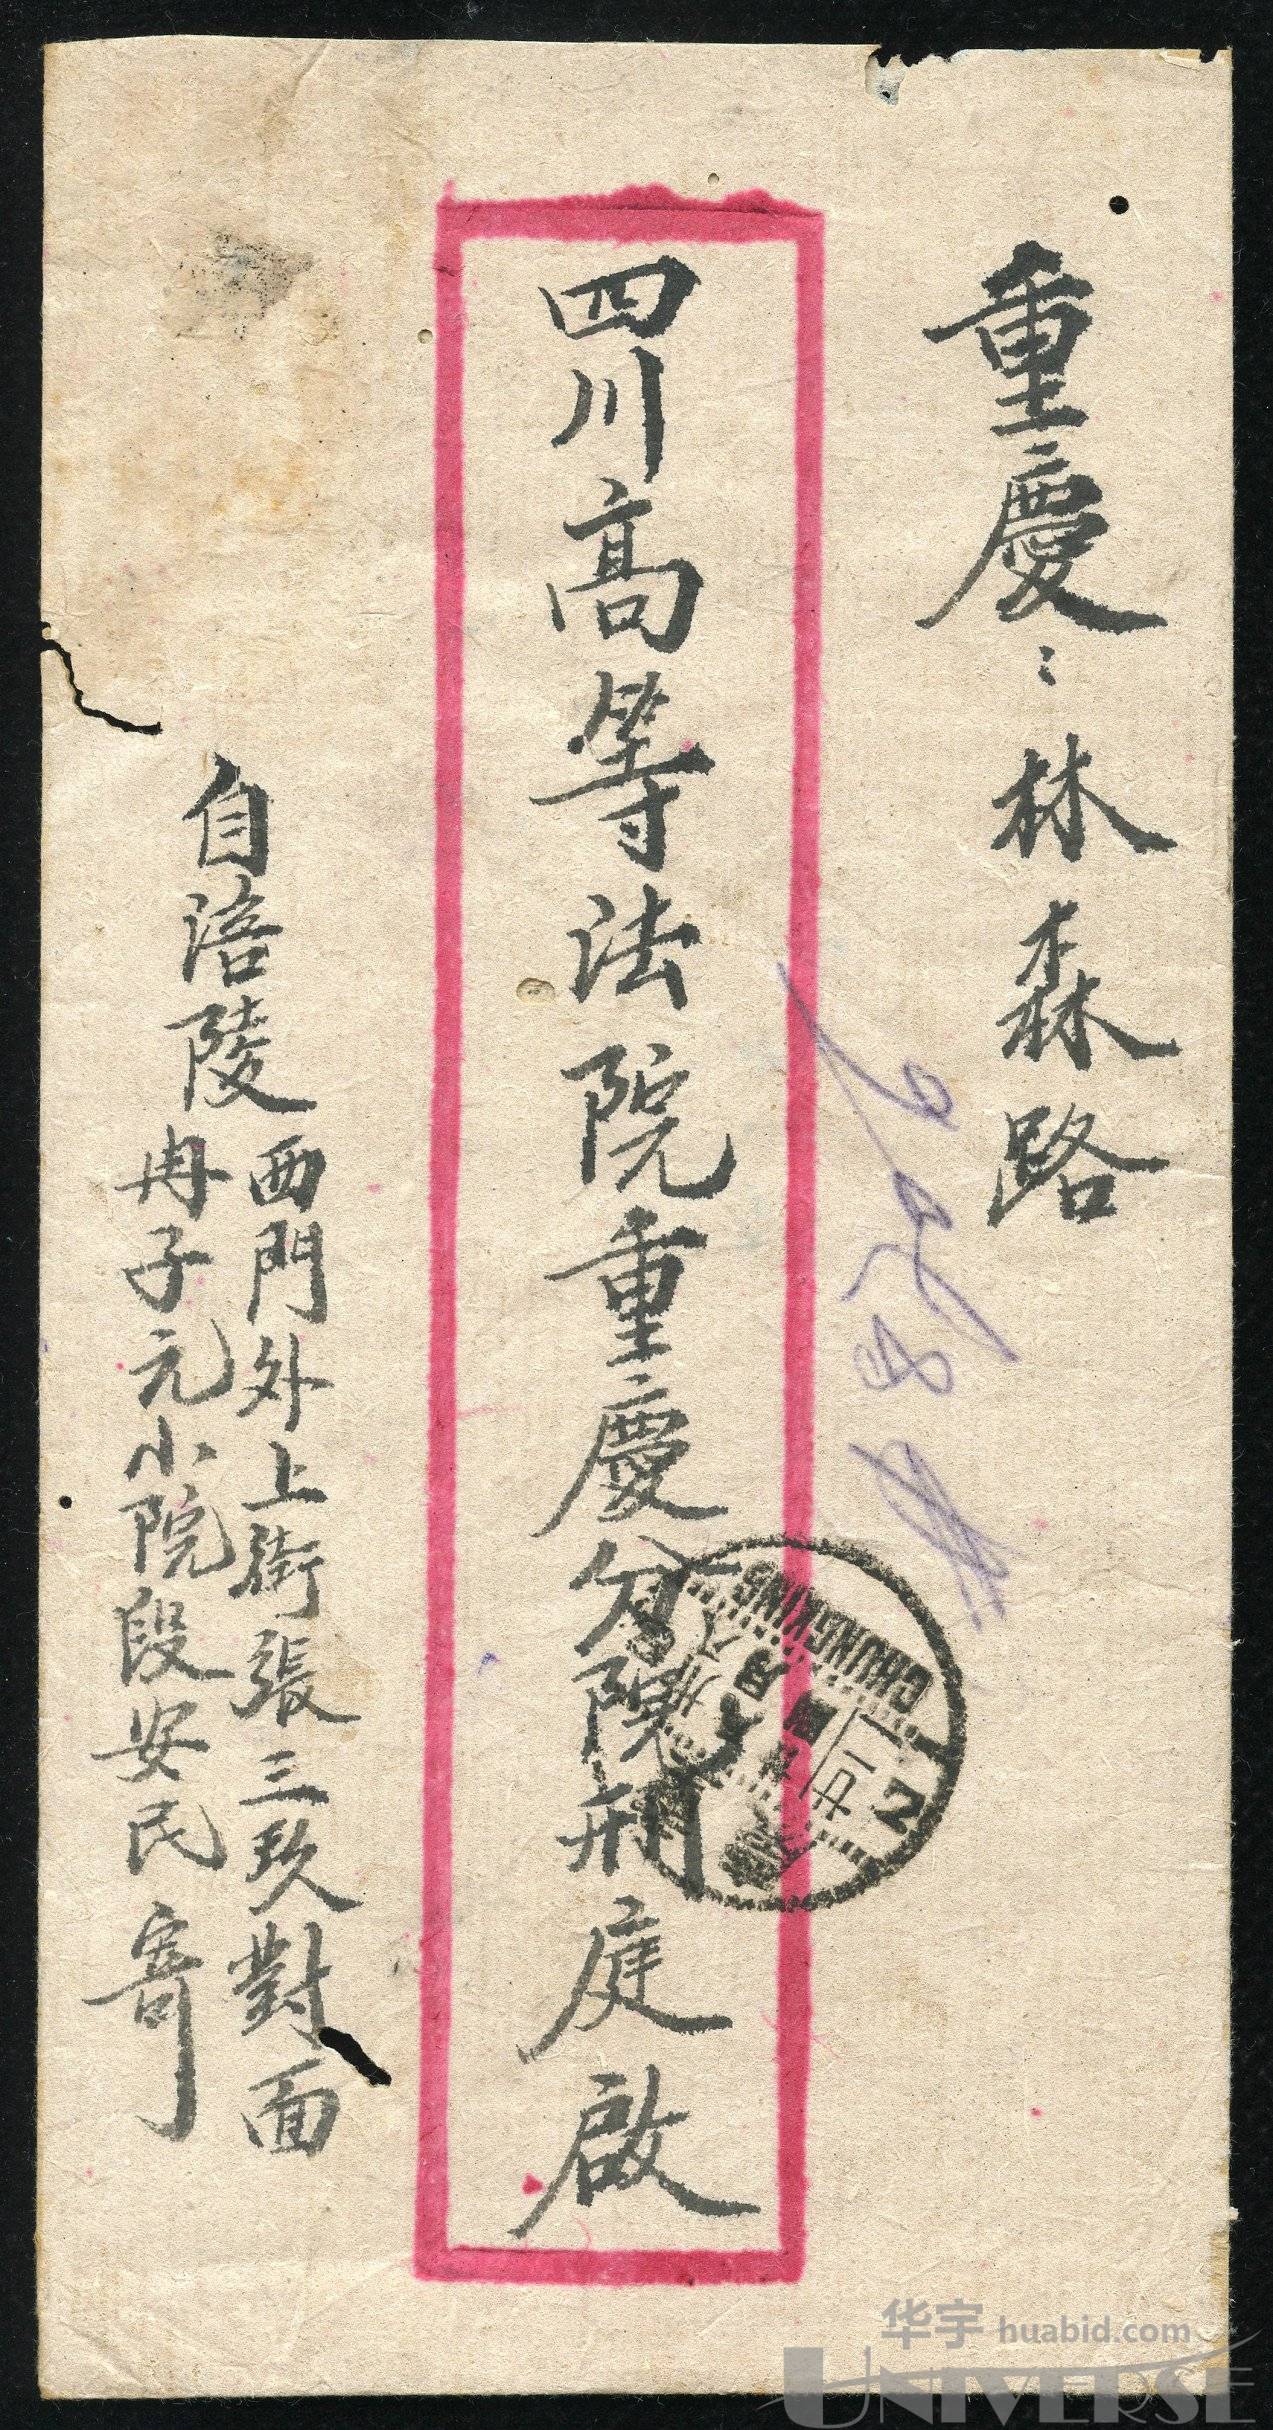 重慶:林森路
四川高等法院重慶分院刑庭啟
自涪陵西門外上街張三玖對面
冉子元小院段安民寄
CHUNGKING
2
华宇 huabid.com
UNIVERSE